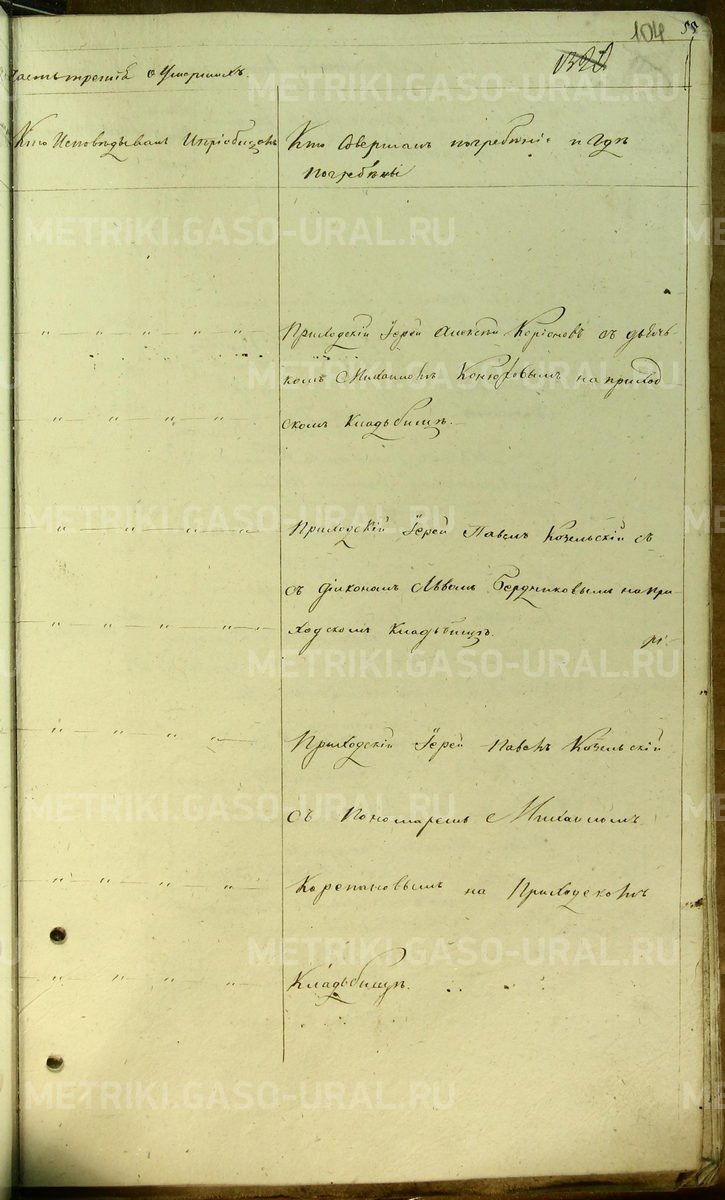 104 55
1320
Часть третия о умершихъ.
Кто Исповѣдывалъ Ипріобщалъ
Кто Совершалъ погребѣніе и гдѣ
погребѣны
Приходскій Іерей Алексѣй съ дьячь-
комъ Михаиломъ на приход
скомъ Кладьбищѣ.
Приходскій Іерей Павелъ Козельскій съ
съ діякономъ Львомъ Бердниковымъ на при-
ходскомъ Кладьбищѣ.
Приходскій Іерей Павелъ Козельскій
съ Пономаремъ Михаиломъ
Карепановымъ на Приходскомъ
Кладьбищѣ.
METRIKI.GASO-URAL.RU